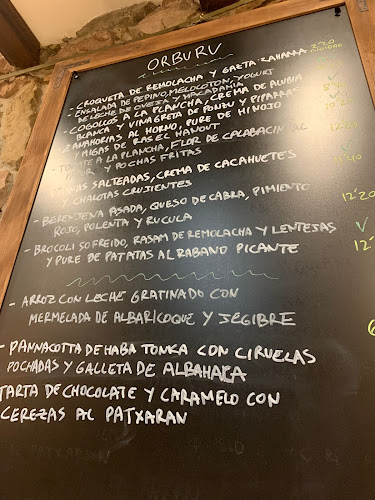 ORBURU
- CROQUETA DE REMOLACHA Y GAZTA ZAHARRA 2'20
UNIDAD
- ENSALADA DE PEPINO, MELOCOTON, YOGURT
DE LECHE DE OVEJA Y MACADAMIA
- COGOLLOS A LA PLANCHA, CREMA DE ALUBIA
BLANCA Y VINAGRETA DE PONZU Y PIPARRAS
- ZANAHORIAS AL HORNO, PURE DE HINOJO
Y MIGAS DE RAS EL HANOUT
A LA PLANCHA, FLOR DE CALABACIN AL
Y POCHAS FRITAS
SALTEADAS, CREMA DE CACAHUETES
Y CHALOTAS CRUJIENTES
- BERENJENA ASADA, QUESO DE CABRA, PIMIENTO 12'20
ROJO, POLENTA Y RUCULA
- BROCOLI SOFREIDO, RASAM DE REMOLACHA Y LENTEJAS
Y PURE DE PATATAS AL RABANO PICANTE
- ARROZ CON LECHE GRATINADO CON
MERMELADA DE ALBARICOQUE Y JEGIBRE
- PANNACOTTA DE HABA TONCA CON CIRUELAS
POCHADAS Y GALLETA DE ALBAHACA
TARTA DE CHOCOLATE Y CARAMELO CON
CEREZAS AL PATXARAN